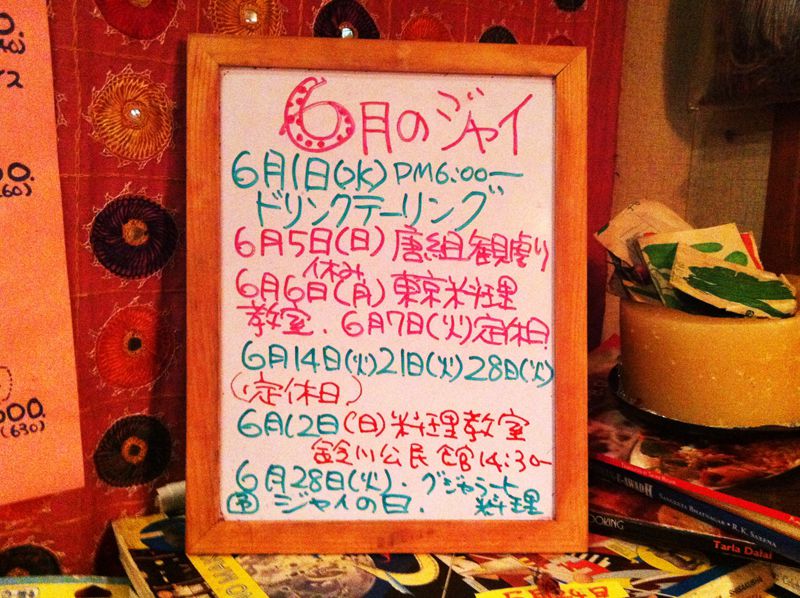 6月のジャイ
6月1日(水)PM6:00ー
ドリンクテーリング
6月5日(日)唐組観劇り
休み
6月6日(月)東京料理
教室.6月7日(火)定休日
6月14日(火)21日(火)28日(火)
(定休日)
6月12日(日)料理教室
鈴川公民館14:30ー
6月28日(火).グジャラート
ジャイの日.料理
00.
(630)
SANGEETA BHATNAGAR • R.K. SAXENA
Tarla Dalal
OOKING
5月24日